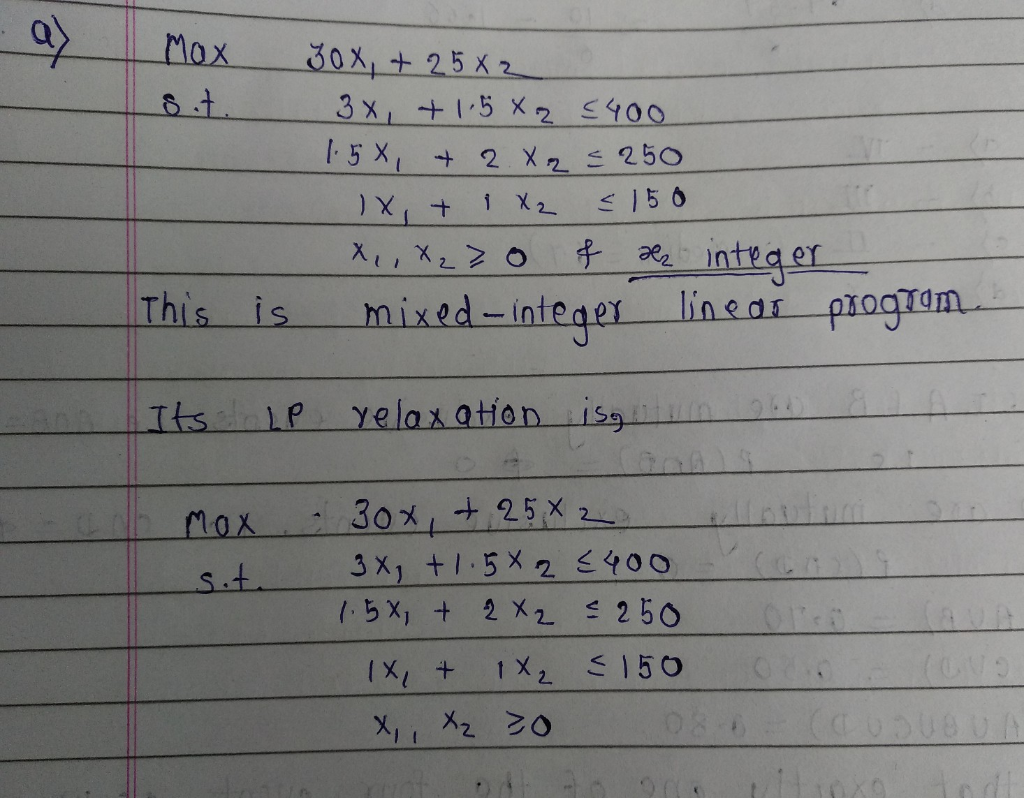 a)
Max 30x₁ + 25x₂
s.t. 3x₁ + 1.5x₂ ≤ 400
1.5x₁ + 2x₂ ≤ 250
1x₁ + 1x₂ ≤ 150
x₁, x₂ ≥ 0 & x₂ integer
This is mixed-integer linear program.
Its LP relaxation is,
Max 30x₁ + 25x₂
s.t. 3x₁ + 1.5x₂ ≤ 400
1.5x₁ + 2x₂ ≤ 250
1x₁ + 1x₂ ≤ 150
x₁, x₂ ≥ 0